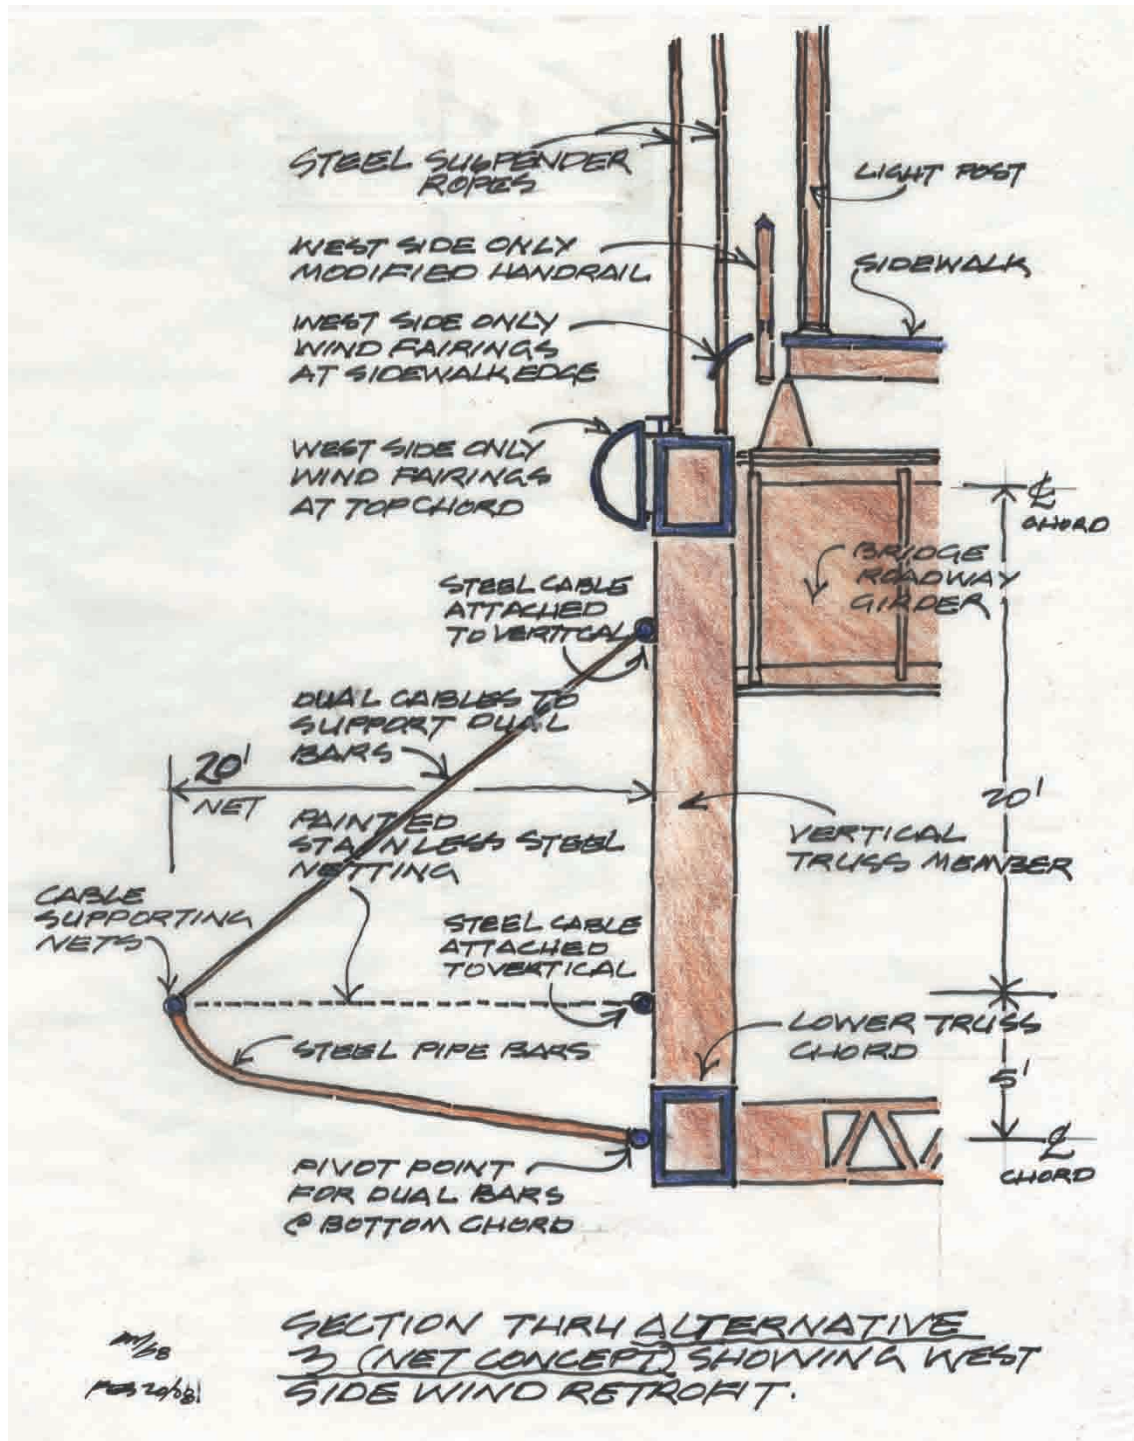 STEEL SUSPENDER
ROPES
LIGHT POST
WEST SIDE ONLY
MODIFIED HANDRAIL
SIDEWALK
WEST SIDE ONLY
WIND FAIRINGS
AT SIDEWALK EDGE
WEST SIDE ONLY
WIND FAIRINGS
AT TOP CHORD
℄
CHORD
BRIDGE
ROADWAY
GIRDER
STEEL CABLE
ATTACHED
TO VERTICAL
DUAL CABLES TO
SUPPORT DUAL
BARS
20'
NET
20'
PAINTED
STAINLESS STEEL
NETTING
VERTICAL
TRUSS MEMBER
CABLE
SUPPORTING
NETS
STEEL CABLE
ATTACHED
TO VERTICAL
STEEL PIPE BARS
LOWER TRUSS
CHORD
5'
℄
CHORD
PIVOT POINT
FOR DUAL BARS
@ BOTTOM CHORD
SECTION THRU ALTERNATIVE
3 (NET CONCEPT) SHOWING WEST
SIDE WIND RETROFIT.